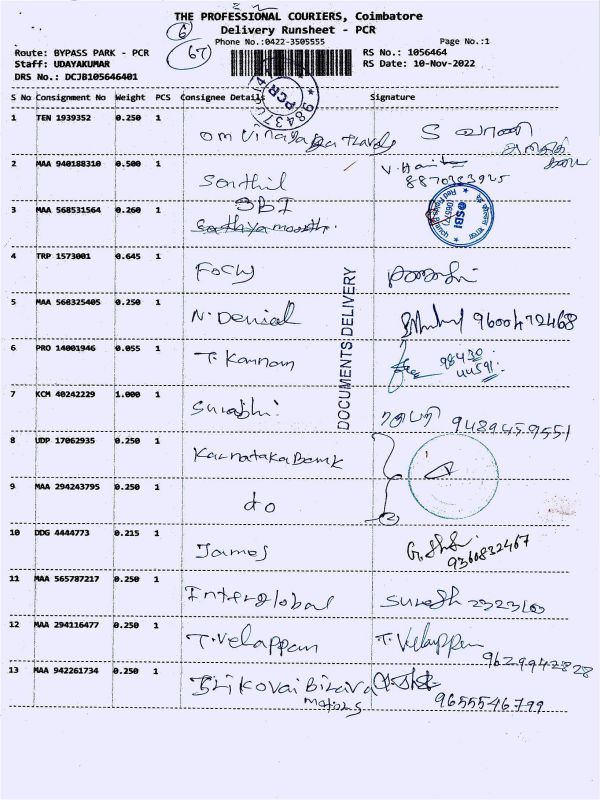 THE PROFESSIONAL COURIERS, Coimbatore
Delivery Runsheet - PCR
6
67
Phone No.:0422-3505555
Page No.:1
Route: BYPASS PARK - PCR
RS No.: 1056464
Staff: UDAYAKUMAR
RS Date: 10-Nov-2022
DRS No.: DCJB105646401
PCR
S No Consignment No Weight PCS Consignee Details Signature
1 TEN 1939352 0.250 1
om Vinayaga travels S வாணி
2 MAA 940188310 0.500 1
Senthil V. Hari
8870383925
3 MAA 568531564 0.260 1
SBI
Sathyamoorthi.
SBI
4 TRP 1573001 0.645 1
5 MAA 568325405 0.250 1
N. Denial 9600472468
DOCUMENTS DELIVERY
6 PRO 14001946 0.055 1
T. Kannan 98430
44591
7 KCM 40242229 1.000 1
Surabhi. 9489459551
8 UDP 17062935 0.250 1
Karnataka Bank
9 MAA 294243795 0.250 1
do
10 DDG 4444773 0.215 1
James 9360832467
11 MAA 565787217 0.250 1
Interglobal Suresh
12 MAA 294116477 0.250 1
T. Velappan T. Velappan
9629942828
13 MAA 942261734 0.250 1
Sri Kovai Bizava
Motors 9655546799